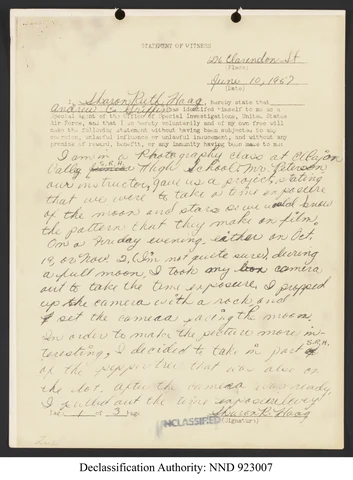 STATEMENT OF WITNESS
626 Clarendon St
(Place)
June 10, 1967
(Date)
I, Sharon Ruth Haag, hereby state that
Andrew C. has identified himself to me as a
Special Agent of the Office of Special Investigations, United States
Air Force, and that I am hereby voluntarily and of my own free will
make the following statement without having been subjected to any
coercion, unlawful influence or unlawful inducement, and without any
promise of reward, benefit, or any immunity having been made to me:
I am in a Photography class at El Cajon
S.R.H.
Valley High School. Mr. Peterson
our instructor, gave us a project, stating
that we were to take a time exposure
of the moon and stars so we could show
the pattern that they make on film.
On a Friday evening either on Oct.
19, or Nov. 2, (I'm not quite sure), during
a full moon, I took my camera
out to take the time exposure. I propped
up the camera with a rock and
set the camera facing the moon.
In order to make the picture more in-
S.R.H.
teresting, I decided to take in part
of the pepper tree that was also on
the lot. After the camera was ready,
I pulled out the time exposure lever
1 of 3
UNCLASSIFIED
Sharon R. Haag
(Signature)
Declassification Authority: NND 923007